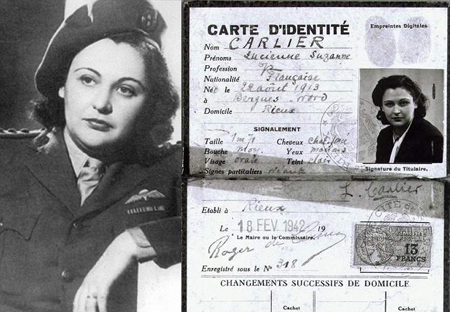 Empreintes Digitales
CARTE D'IDENTITÉ
Nom CARLIER
Prénoms Lucienne Suzanne
Profession
Nationalité Française
Né le 20 août 1913
à Bergues Nord
Domicile Rieux
SIGNALEMENT
Taille 1m71 Cheveux
Bouche moy. Yeux marrons
Visage ovale Teint clair
Signes particuliers Néant
Signature du Titulaire.
L. Carlier
Etabli à Rieux
Le 18 FEV. 1942 19
Le Maire ou le Commissaire.
Enregistré sous le No 318
13
FRANCS
CHANGEMENTS SUCCESSIFS DE DOMICILE
Cachet Cachet